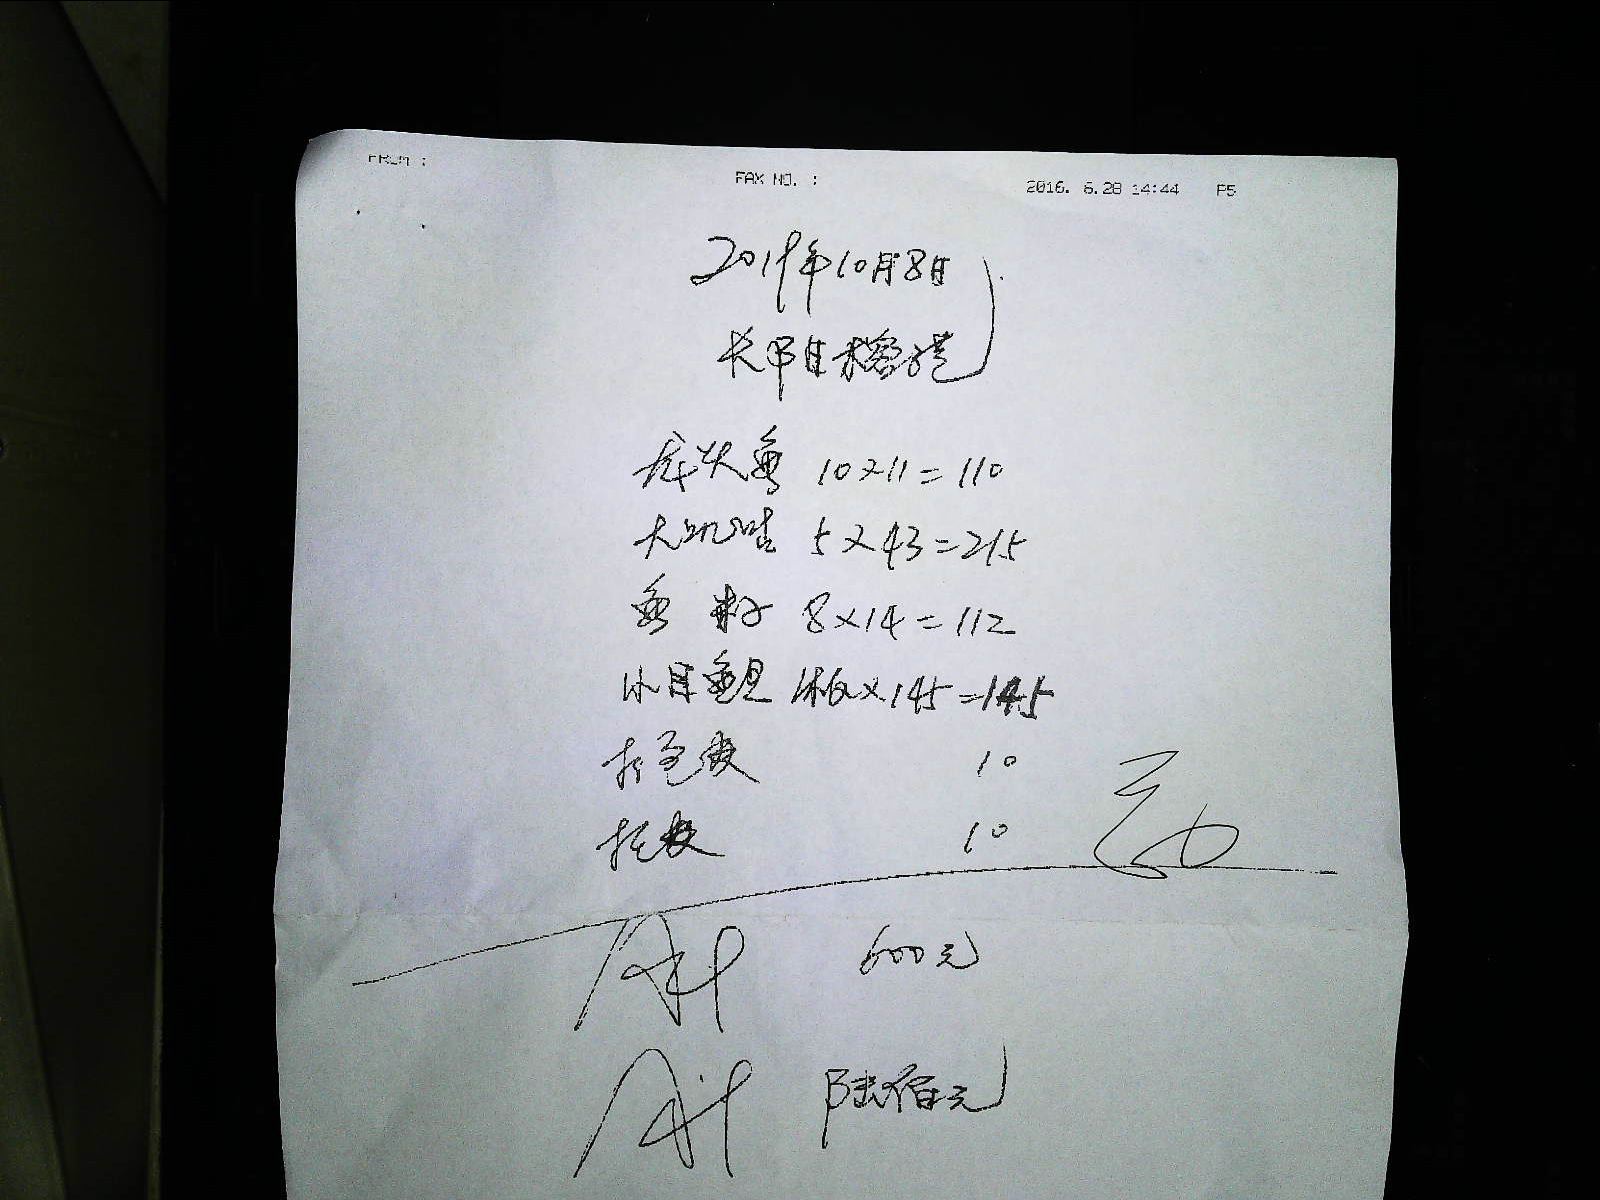 FROM :
FAX NO. :
2016. 6.28 14:44 P5
2019年10月8日
长平日木
龙头鱼 10×11=110
大 5×43=215
鱼籽 8×14=112
小目鱼旦 1板×145=145
打包费 10
托费 10
600元
陆佰元